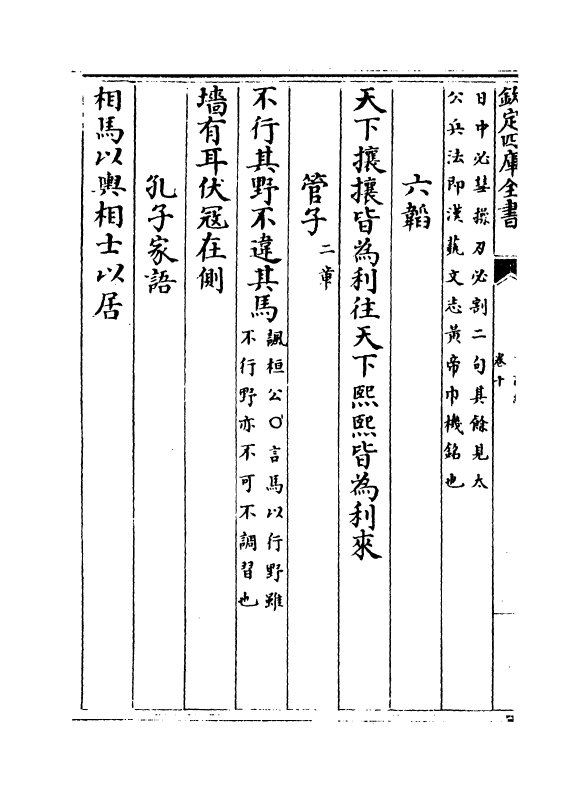 欽定四庫全書
卷十
日中必䓺操刀必割二句其餘見太
公兵法即漢藝文志黃帝巾機銘也
六韜
天下攘攘皆為利往天下熙熙皆為利來
管子二章
不行其野不違其馬諷桓公〇言馬以行野雖
不行野亦不可不調習也
墻有耳伏冦在側
孔子家語
相馬以輿相士以居